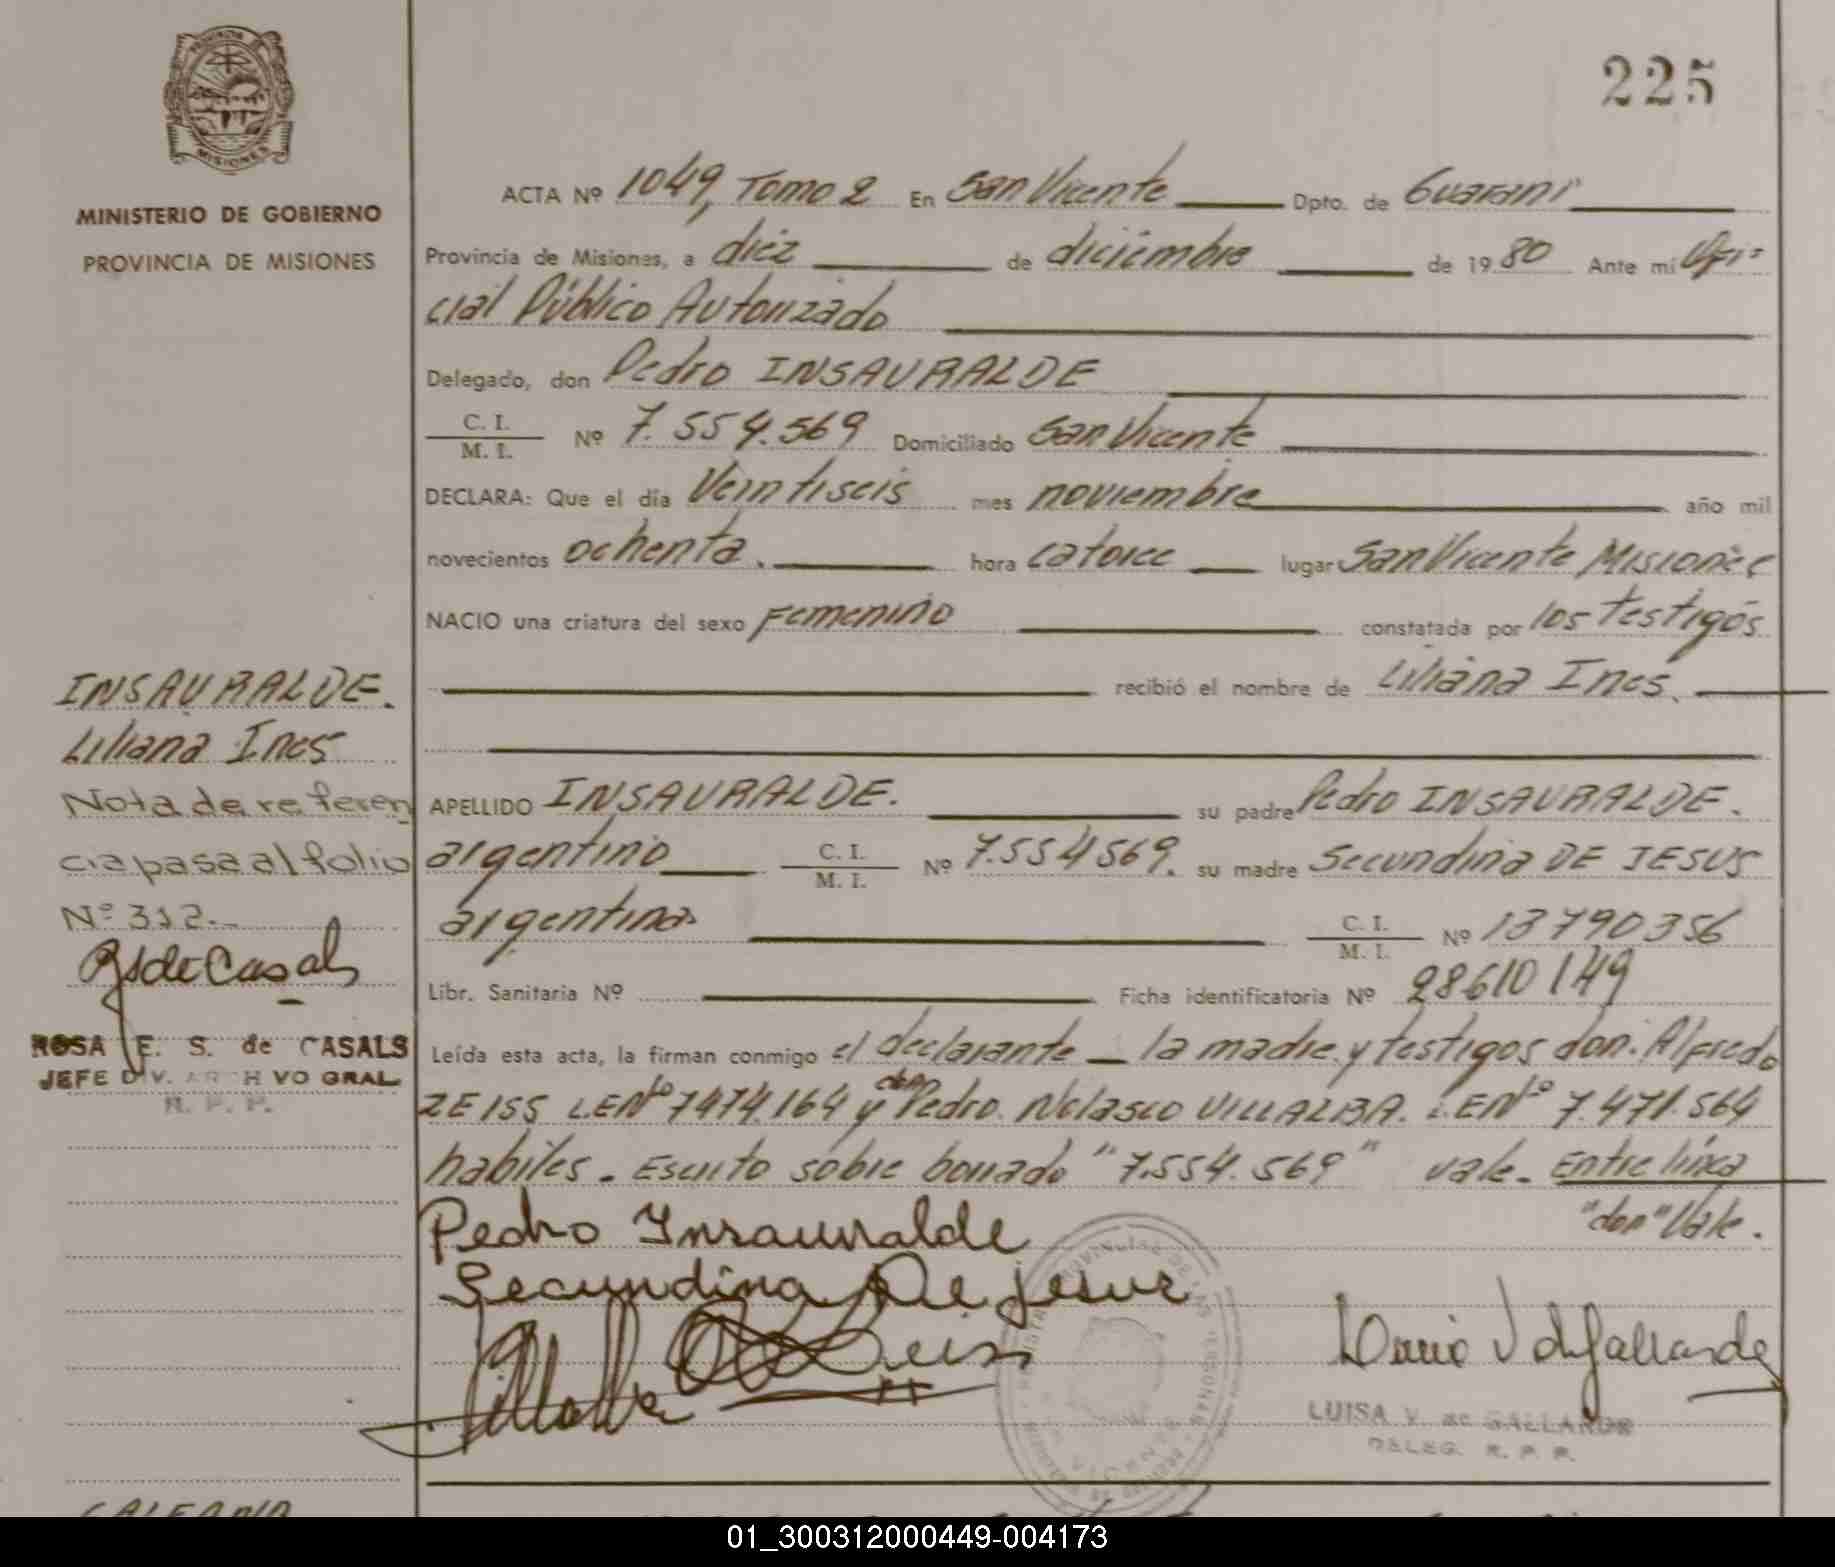 225
MISIONES
MINISTERIO DE GOBIERNO
PROVINCIA DE MISIONES
ACTA Nº 1049, Tomo 2 En San Vicente Dpto. de Guaraní
Provincia de Misiones, a diez de diciembre de 1980 Ante mí Ofi=
cial Público Autorizado
Delegado, don Pedro INSAURALDE
C. I.
M. I.
Nº 7.554.569 Domiciliado San Vicente
DECLARA: Que el día Veintiseis mes noviembre año mil
novecientos ochenta. hora catorce lugar San Vicente Misiones
NACIO una criatura del sexo Femenino constatada por los testigos
recibió el nombre de Liliana Ines.
APELLIDO INSAURALDE. su padre Pedro INSAURALDE.
argentino C. I. M. I. Nº 7.554569. su madre Secundina DE JESUS
argentina C. I. M. I. Nº 13790356
Libr. Sanitaria Nº Ficha identificatoria Nº 28610149
Leída esta acta, la firman conmigo el declarante la madre y testigos don. Alfredo
ZEISS LENº 7474.164 y don Pedro Nolasco VILLALBA. LENº 7.471.564
habiles. Escrito sobre borrado "7.554.569" vale. Entre linea
"don" Vale.
Pedro Insauralde
Secundina De Jesus
LUISA V. de GALLARDO
DELEG. R. P. P.
INSAURALDE.
Liliana Ines
Nota de referen
cia pasa al folio
Nº 312.
RS de Casals
ROSA E. S. de CASALS
JEFE DIV. ARCHIVO GRAL.
R. P. P.
01_300312000449-004173